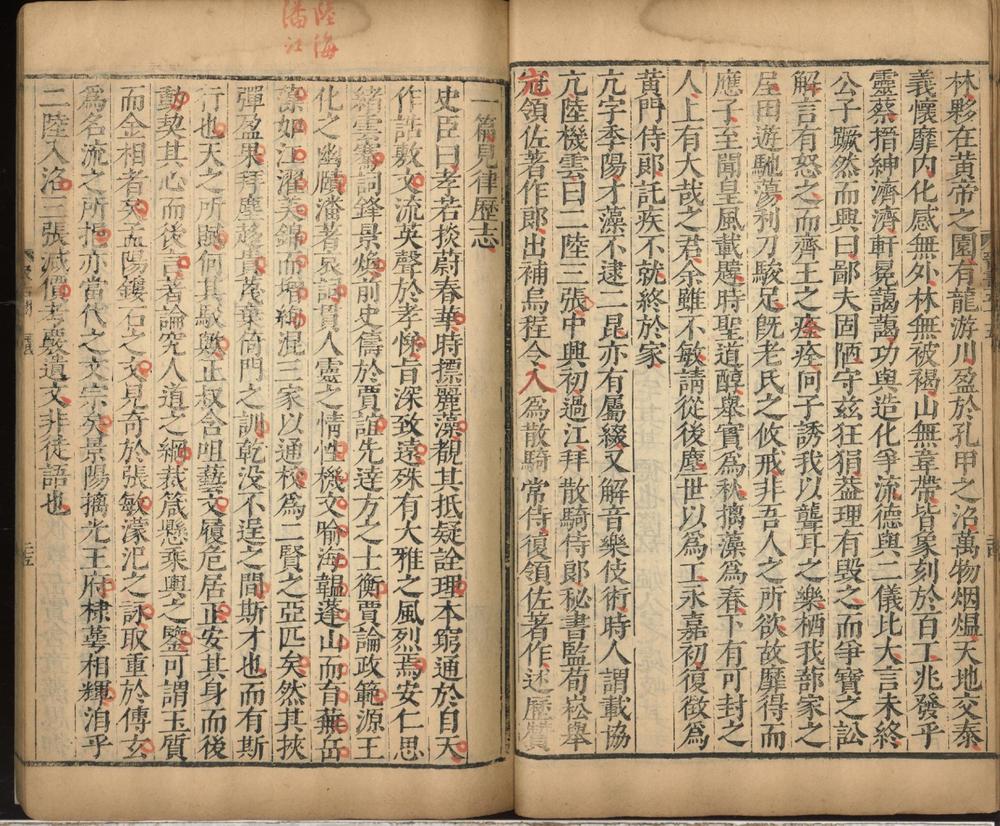 林夥在黃帝之園有龍游川盈於孔甲之沼萬物烟熅天地交泰
義懷靡内化感無外林無被褐山無韋帶皆象刻於百工兆發乎
靈蔡搢紳濟濟軒冕藹藹功與造化爭流德與二儀比大言未終
公子蹶然而興曰鄙夫固陋守兹狂狷葢理有毀之而爭寶之訟
解言有怒之而齊王之痊痊向子誘我以聾耳之樂栖我部家之
屋田遊馳蕩利刀駿足旣老氏之攸戒非吾人之所欲故靡得而
應子至聞皇風載韙時聖道醇舉實爲秋摛藻爲春下有可封之
人上有大哉之君余雖不敏請從後塵世以爲工永嘉初復徵爲
黃門侍郎託疾不就終於家
亢字季陽才藻不逮二昆亦有屬綴又解音樂伎術時人謂載協
亢陸機雲曰二陸三張中興初過江拜散騎侍郎秘書監荀崧舉
亢領佐著作郎出補烏程令入爲散騎常侍復領佐著作述歷贊
陸海
潘江
一篇見律歷志
史臣曰孝若掞蔚春華時摽麗藻覩其抵疑詮理本窮通於自天
作誥敷文流英聲於孝悌旨深致遠殊有大雅之風烈焉安仁思
緒雲騫詞鋒景煥前史儔於賈誼先達方之士衡賈論政範源王
化之幽賾潘著哀詞貫人靈之情性機文喻海韞蓬山而育蕪岳
藻如江濯美錦而增絢混三家以通校爲二賢之亞匹矣然其挾
彈盈果拜塵趍貴蔑棄倚門之訓乾没不逞之間斯才也而有斯
行也天之所賦何其駮歟正叔含咀藝文履危居正安其身而後
動契其心而後言著論究人道之綱裁箴懸乗輿之鑒可謂玉質
而金相者矣孟陽鏤石之文見奇於張敏濛汜之詠取重於傅玄
爲名流之所挹亦當代之文宗矣景陽摛光王府棣萼相輝洎乎
二陸入洛三張減價考覈遺文非徒語也